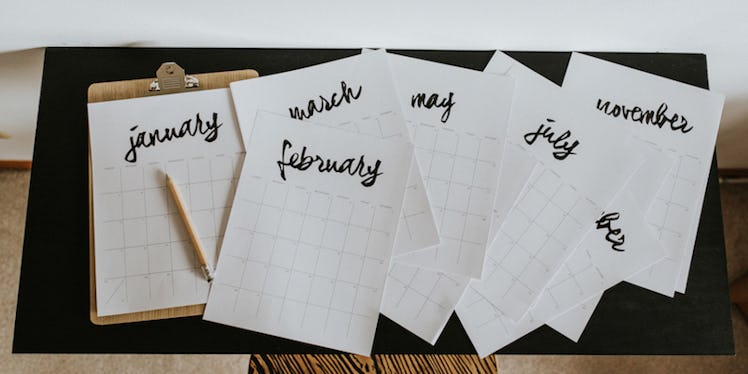 january
february
march
may
july
ber
november